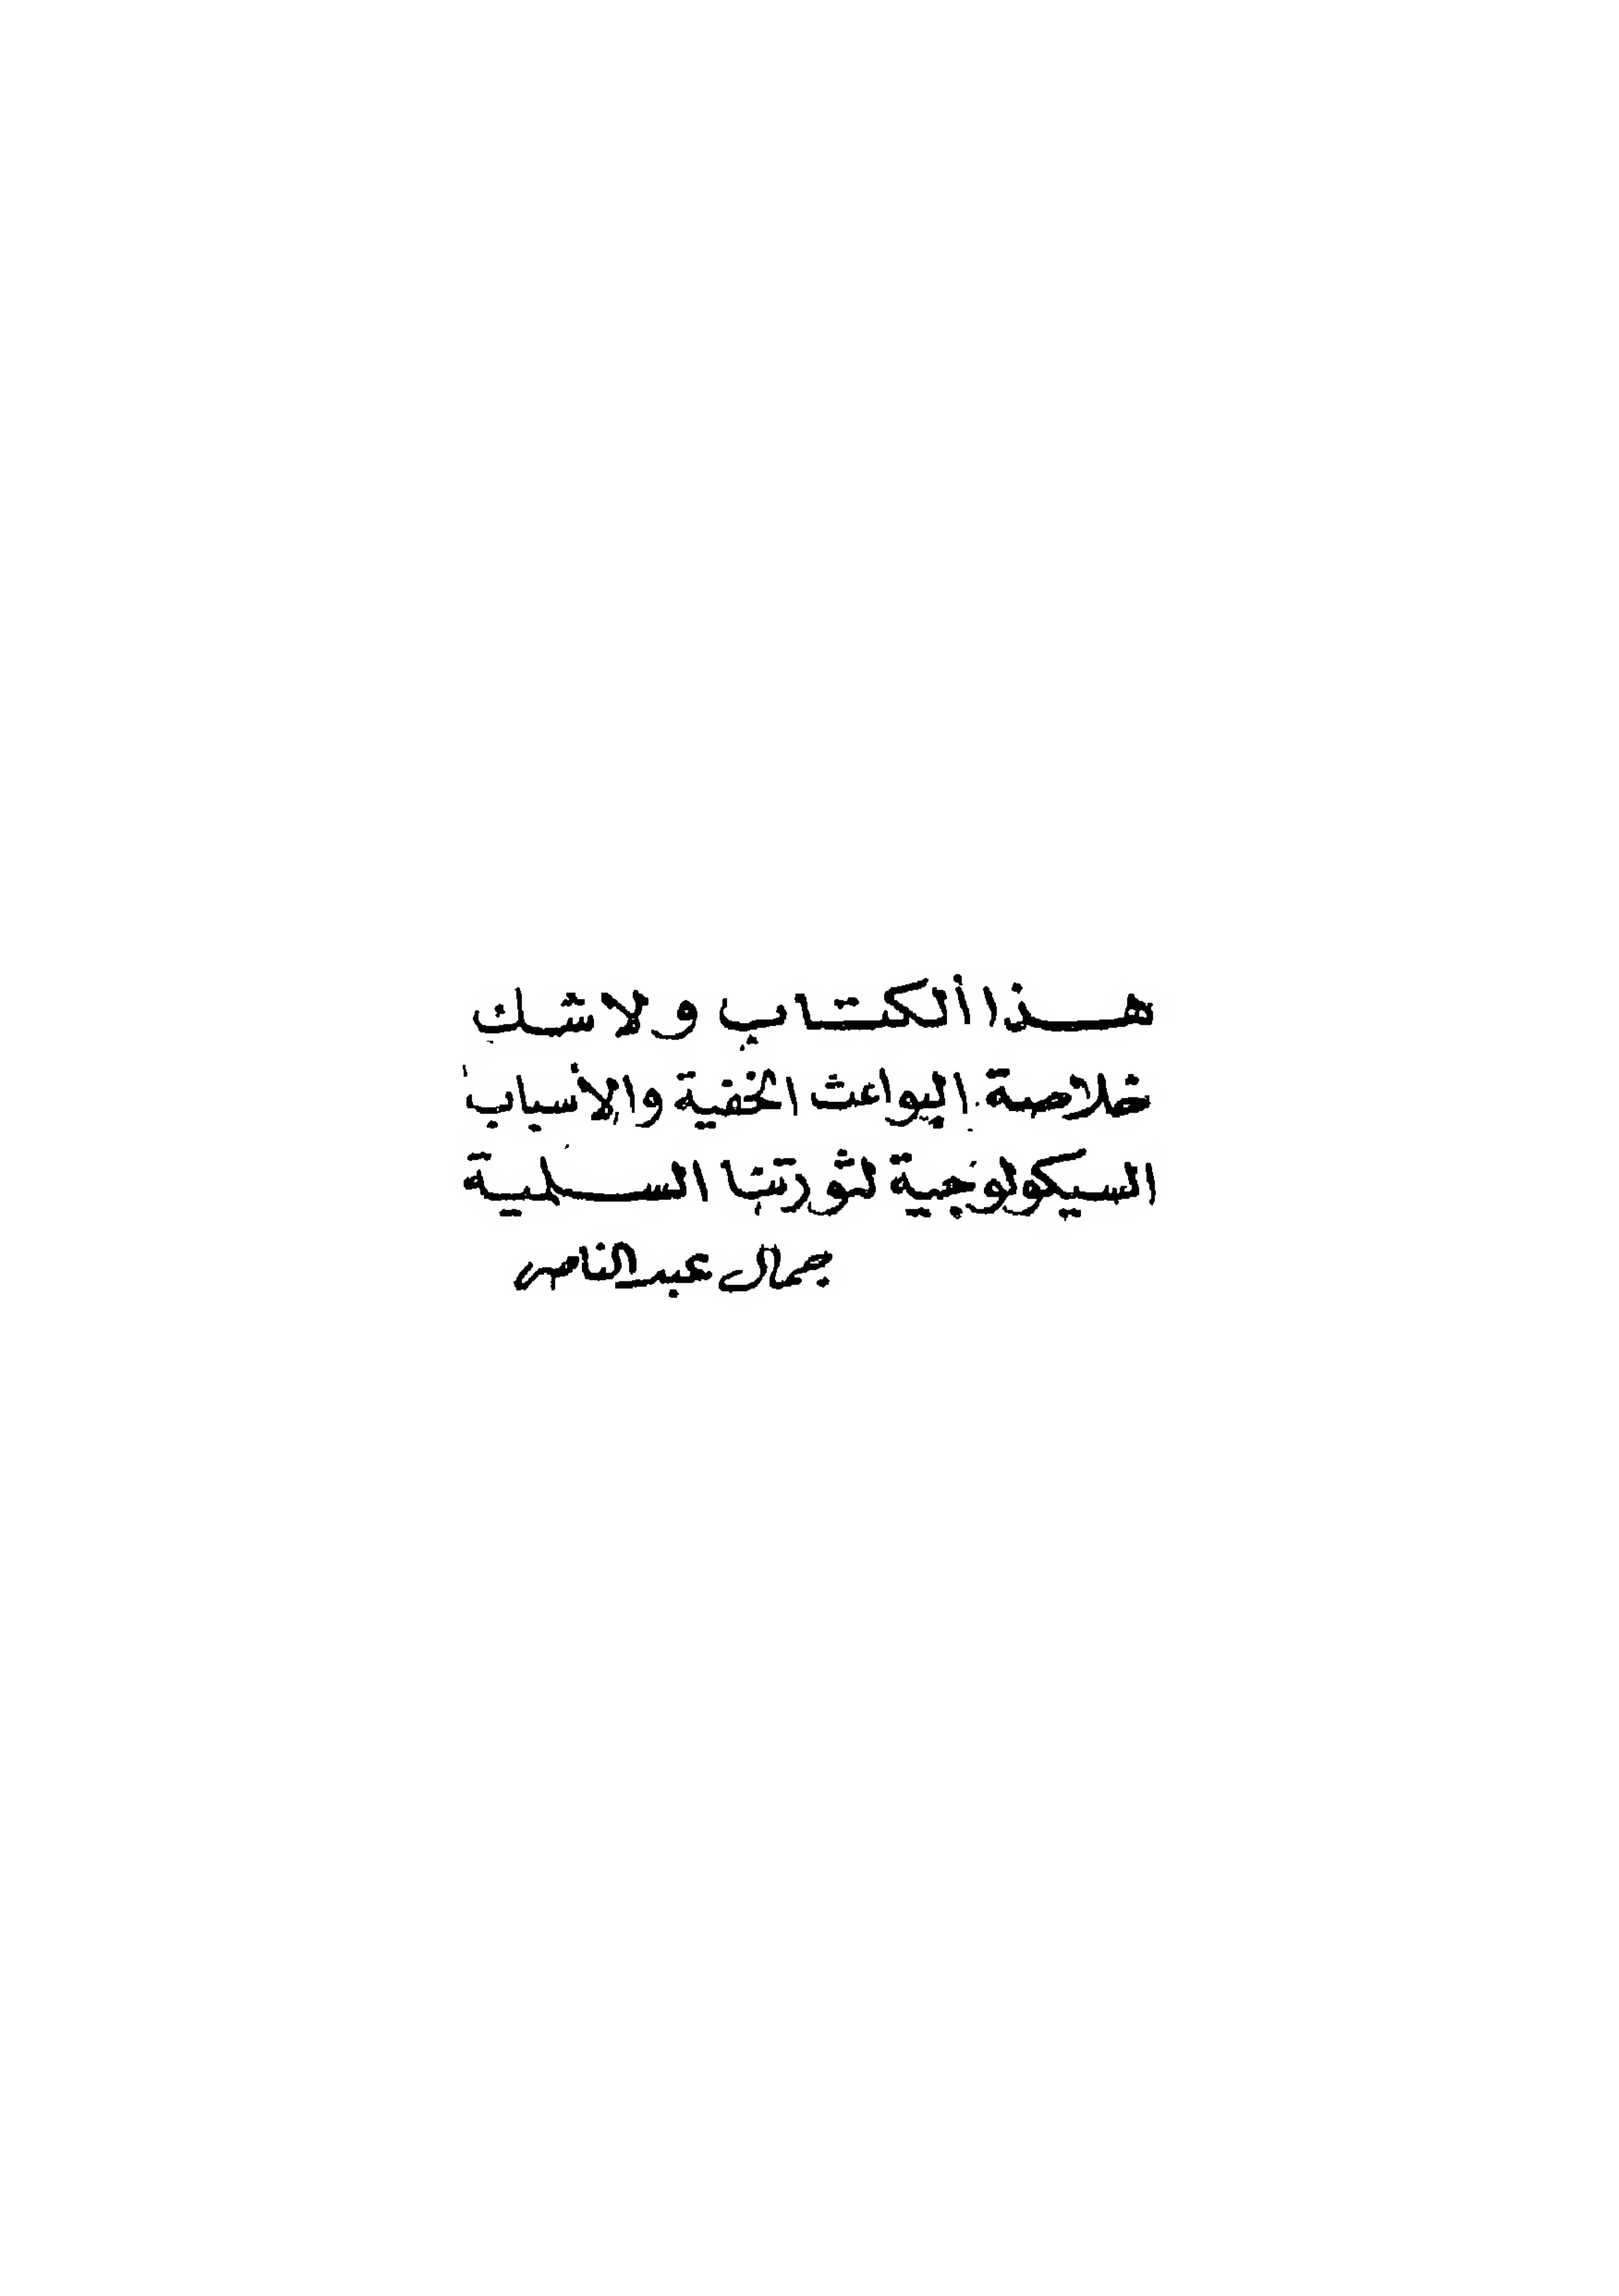 هذا الكتاب ولاشك
خلاصة البواعث الخفية والأسباب
السيكولوجية لثورتنا السلمية
جمال عبد الناصر